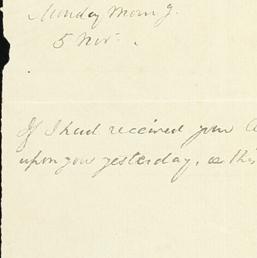 Monday Morng.
5 Nov.
If I had received your
upon you yesterday, as this